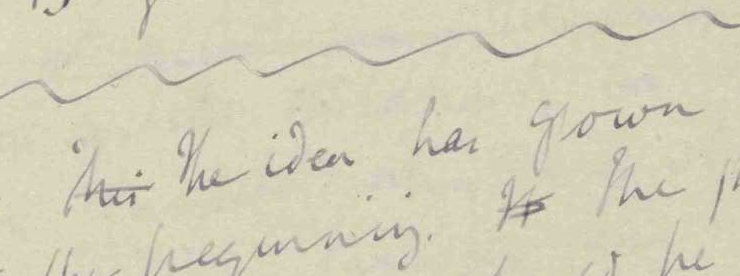 This The idea has grown
the beginning. It The